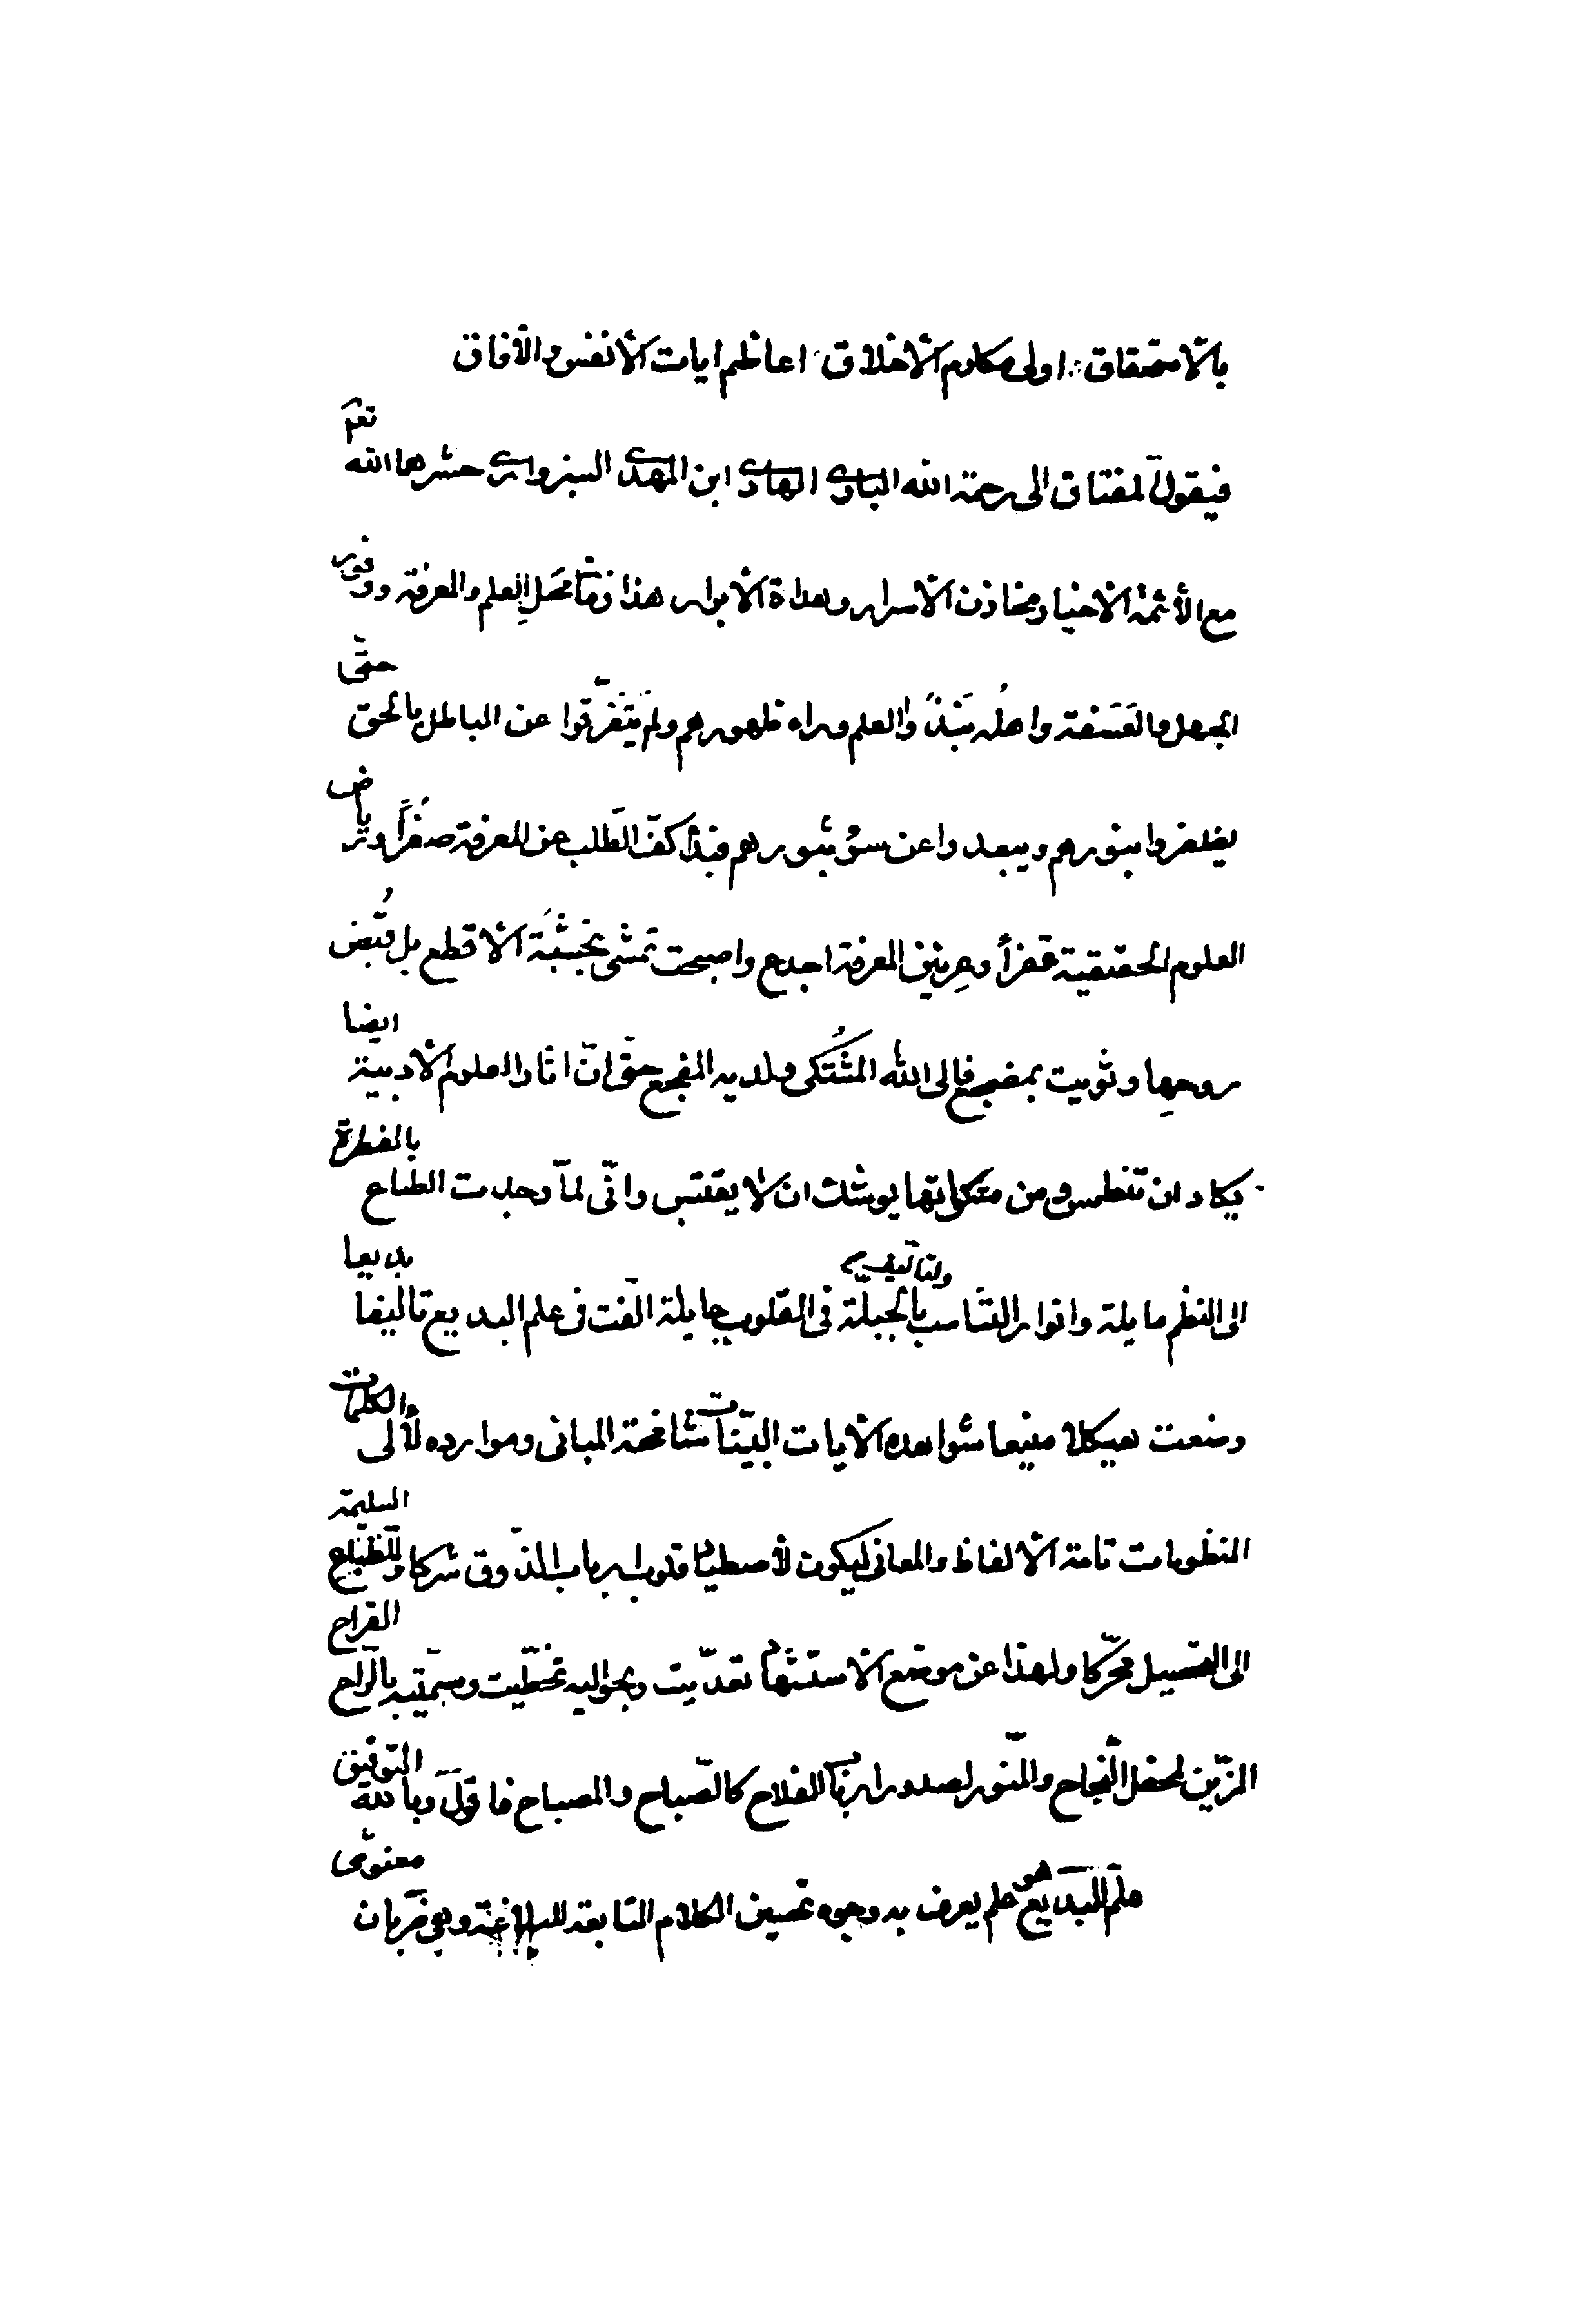 بالاستحقاق ∴ اولى مكارم الاخلاق ∴ اعاظم ايات الأنفس والآفاق
فيقول المفتاق الى رحمة الله البارى الهادى ابن المهدى السبزوارى حشرهما الله تعم
مع الأئمة الاخيار مخازن الاسرار وهداة الابرار هذا زمان محل العلم والمعرفة ووفور
الجهل والعسفة واهله نبذوا العلم وراء ظهورهم ولم يتفرّقوا عن الباطل بالحق حتّى
يظفروا بنورهم ويبعدوا عن سوء ثبورهم فبذا كفّ الطلب عن المعرفة صفراً ورياض
العلوم الحقيقية قفراً وعِرنين المعرفة اجدع واصبحت تمشى بخشبة الاقطع بل قُبّض
روحها وثويت بمضجع فالى الله المشتكى ولديه المفجع حتى انّ اثار العلوم الادبية ايضا
يكاد ان تنطمس ومن مشكوتها يوشك ان لا يقتبس وانّى لمّا وجدت الطباع بالفطرة
الى النظم مايلة وانوار التناسب والتاليف بالجبلّة فى القلوب جايلة الّفت فى علم البديع تاليفا بديعا
وضعت هيكلا منيعا شواهده الآيات البيّنات شامخة المبانى وموارده لألى والكلمات
المنظومات تامة الالفاظ والمعانى ليكون لأصطياد قلوب ارباب الذّوق شركا وللطّباع السليمة
الى التحصيل محرّكا ولهذا عن موضع الاستشهاد تعدّيت وبحواليه تخطّيت وسمّيته بالرّاح القراح
المزيّن لمحفل النجاح والمنّور لصدور ارباب الفلاح كالصّباح والمصباح فاقول وبالله التوفيق
علم البديع هو علم يعرف به وجوه تحسين الكلام التابعة للبلاغة وهى ضربان معنوىّ